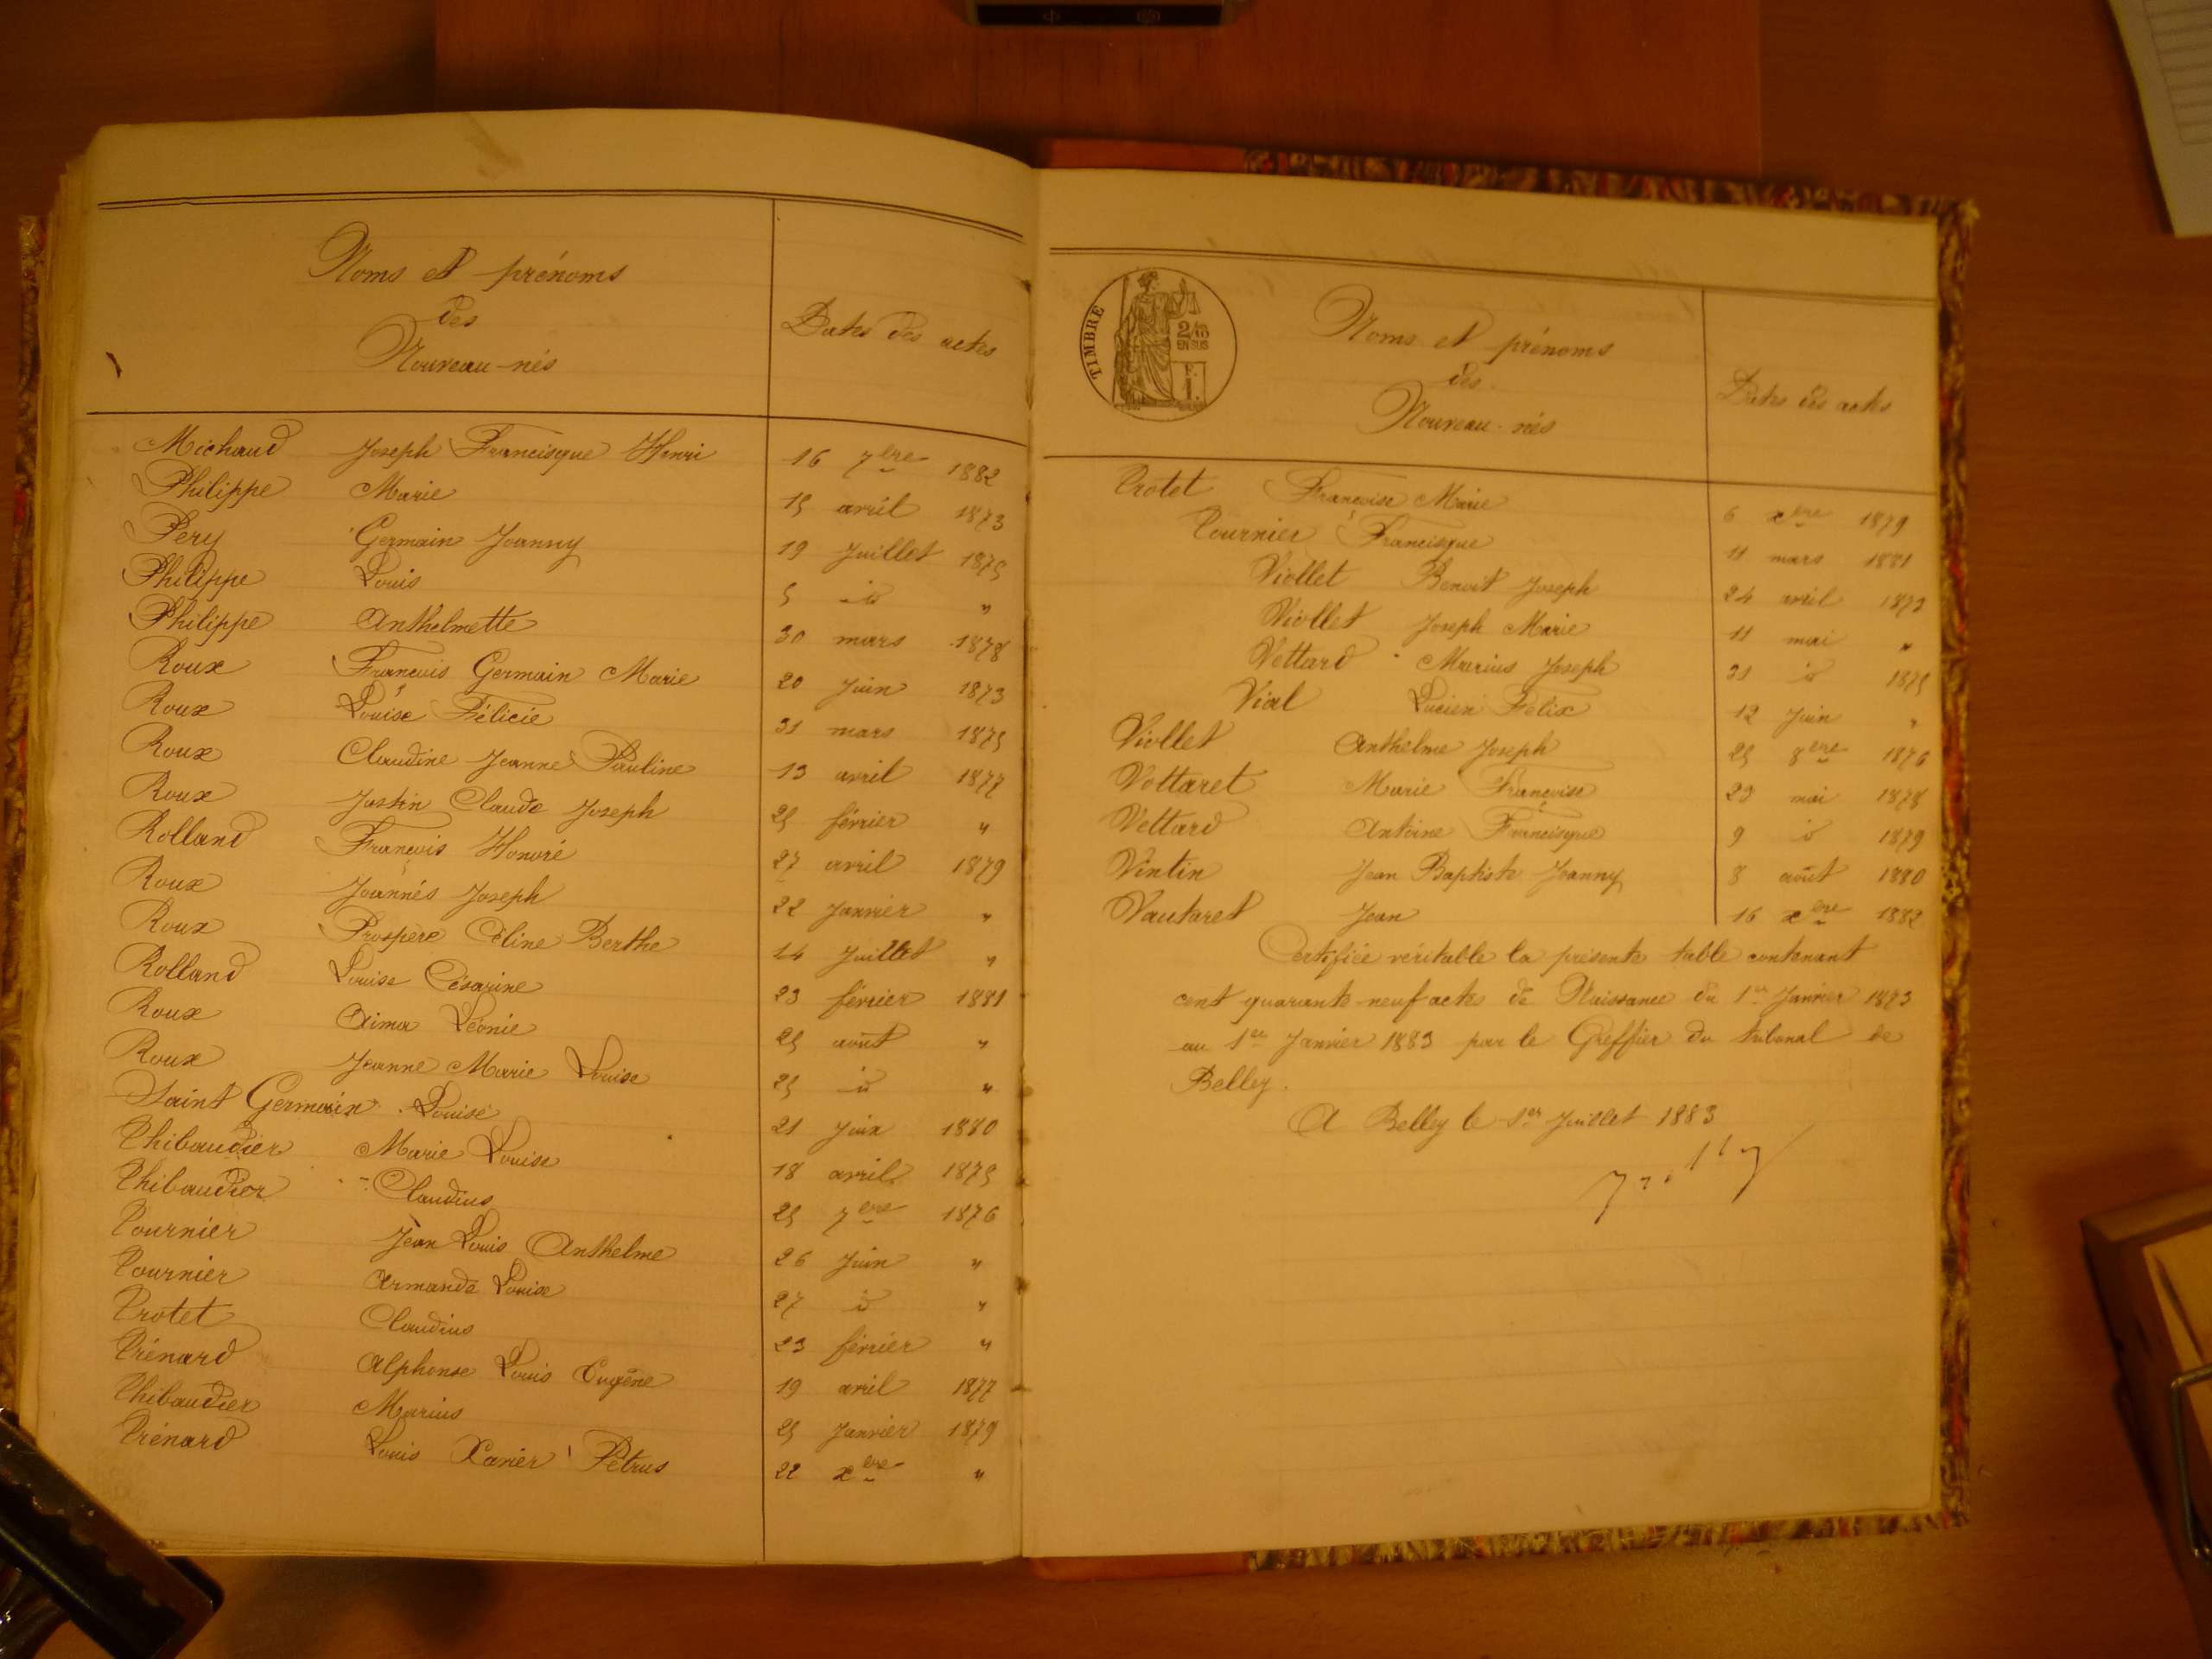 Noms et prénoms
des
Nouveau-nés
Dates des actes
Michaud Joseph Francisque Henri 16 7bre 1882
Philippe Marie 15 avril 1873
Pery Germain Joanny 19 Juillet 1875
Philippe Louis 5 id "
Philippe Anthelmette 30 mars 1878
Roux François Germain Marie 20 Juin 1873
Roux Louise Félicie 31 mars 1875
Roux Claudine Jeanne Pauline 13 avril 1877
Roux Justin Claude Joseph 25 février "
Rolland François Honoré 27 avril 1879
Roux Joannés Joseph 22 Janvier "
Roux Prospère Céline Berthe 14 Juillet "
Rolland Louise Césarine 23 février 1881
Roux Aima Léonie 25 août "
Roux Jeanne Marie Louise 25 id "
Saint Germain Louise 21 Juin 1880
Thibaudier Marie Louise 18 avril 1875
Thibaudier Claudius 25 7bre 1876
Tournier Jean Louis Anthelme 26 Juin "
Tournier Armande Louise 27 id "
Trotet Claudius 23 février "
Trénard Alphonse Louis Eugène 19 avril 1877
Thibaudier Marius 25 Janvier 1879
Trénard Louis Xavier Pétrus 22 xbre "
TIMBRE
2/10
EN SUS
F.
1.
Noms et prénoms
des
Nouveau-nés
Dates des actes
Trotet Françoise Marie 6 xbre 1879
Tournier Francisque 11 mars 1881
Viollet Benoit Joseph 24 avril 1873
Viollet Joseph Marie 11 mai "
Vettard Marius Joseph 31 id 1875
Vial Lucien Félix 12 Juin "
Viollet Anthelme Joseph 25 8bre 1876
Vottaret Marie Françoise 23 mai 1878
Vettard Antoine Francisque 9 id 1879
Vintin Jean Baptiste Joanny 8 août 1880
Vautaret Jean 16 xbre 1882
Certifiée véritable la présente table contenant
cent quarante-neuf actes de Naissance du 1er Janvier 1873
au 1er Janvier 1883 par le Greffier du tribunal de
Belley.
A Belley le 1er Juillet 1883